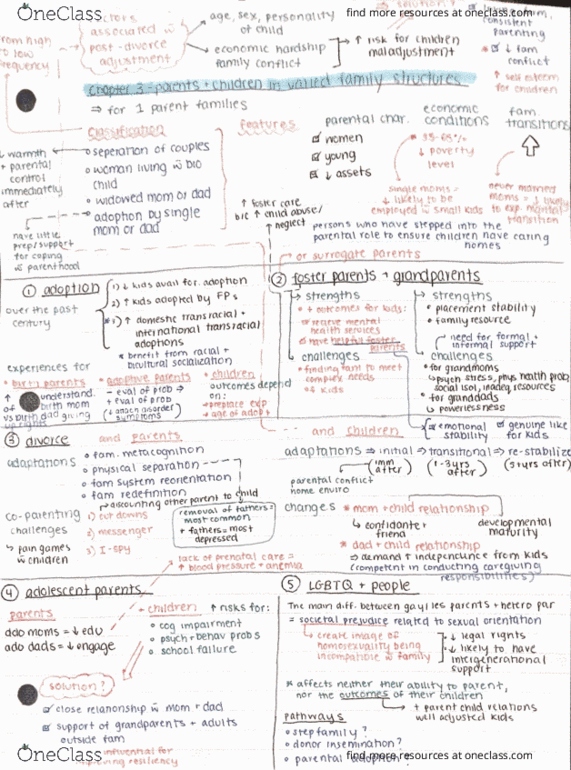 OneClass
find more resources at oneclass.com
factors associated w̄ post-divorce adjustment
→ age, sex, personality of child
→ economic hardship
family conflict
↑ risk for children maladjustment
from high to low frequency
consistent parenting
↓ fam conflict
↑ self esteem for children
Chapter 3 - parents + children in varied family structures
⇒ for 1 parent families
classification
o seperation of couples
o woman living w̄ bio child
o widowed mom or dad
o adoption by single mom or dad
↓ warmth + parental control immediately after
have little prep/support for coping w̄ parenthood
features
parental char.
women
young
↓ assets
economic conditions
* 35-65%
↓ poverty level
fam. transitions
single moms = ↓ likely to be employed w̄ small kids
never married moms = ↓ likely to exp. marital transition
↑ foster care b/c ↑ child abuse/neglect
persons who have stepped into the parental role to ensure children have caring homes
or surrogate parents
① adoption
over the past century
1) ↓ kids avail for adoption
2) ↑ kids adopted by FPs
3) ↑ domestic transracial + international transracial adoptions
* benefit from racial + bicultural socialization
experiences for
• birth parents
↑ understand. of birth mom vs birth dad giving up rights
• adoptive parents
- eval of prob →
+ eval of prob
(+ attach disorder symptoms
• children
outcomes depend on:
• preplace exp
• age of adopt
② foster parents + grandparents
↳ strengths
• + outcomes for kids:
receive mental health services
have helpful foster parents
challenges
• finding fam to meet complex needs of kids
↳ strengths
• placement stability
• family resource
need for formal + informal support
↳ challenges
• for grandmoms
↳ psych stress, phys health probs, social isol, inadeq. resources
• for granddads
↳ powerlessness
emotional stability
genuine like for kids
③ divorce and parents
adaptations
o fam. metacognition
o physical separation
o fam system reorientation
o fam redefinition
↳ discounting other parent to child
co-parenting challenges
↳ pain games w̄ children
1) cut downs
2) messenger
3) I-spy
removal of fathers = most common
+ fathers = most depressed
and children
adaptations ⇒ initial ⇒ transitional ⇒ re-stabilize
(imm after)
(1-3yrs after)
(3+yrs after)
parental conflict
home enviro
changes
* mom + child relationship
↳ confidante + friend
developmental maturity
* dad + child relationship
⇒ demand ↑ independence from kids
(competent in conducting caregiving responsibilities)
lack of prenatal care = ↑ blood pressure + anemia
④ adolescent parents
parents
ado moms = ↓ edu
ado dads = ↓ engage
children
↑ risks for:
o cog impairment
o psych + behav probs
o school failure
solution?
close relationship w̄ mom + dad
support of grandparents + adults outside fam
influential for improving resiliency
⑤ LGBTQ + people
The main diff. between gay/les parents + hetero par
= societal prejudice related to sexual orientation
↳ create image of homosexuality being incompatible w̄ family
↓ legal rights
↓ likely to have intergenerational support
* affects neither their ability to parent, nor the outcomes of their children
↳ + parent child relations
well adjusted kids
pathways
• step family?
• donor insemination?
• parental adoption?
OneClass
find more resources at oneclass.com